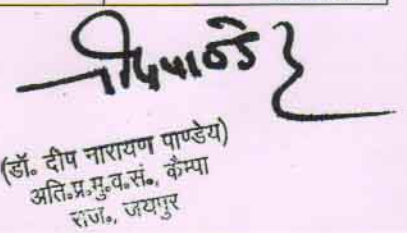 (डॉ. दीप नारायण पाण्डेय)
अति.प्र.मु.व.सं., कैम्पा
राज., जयपुर